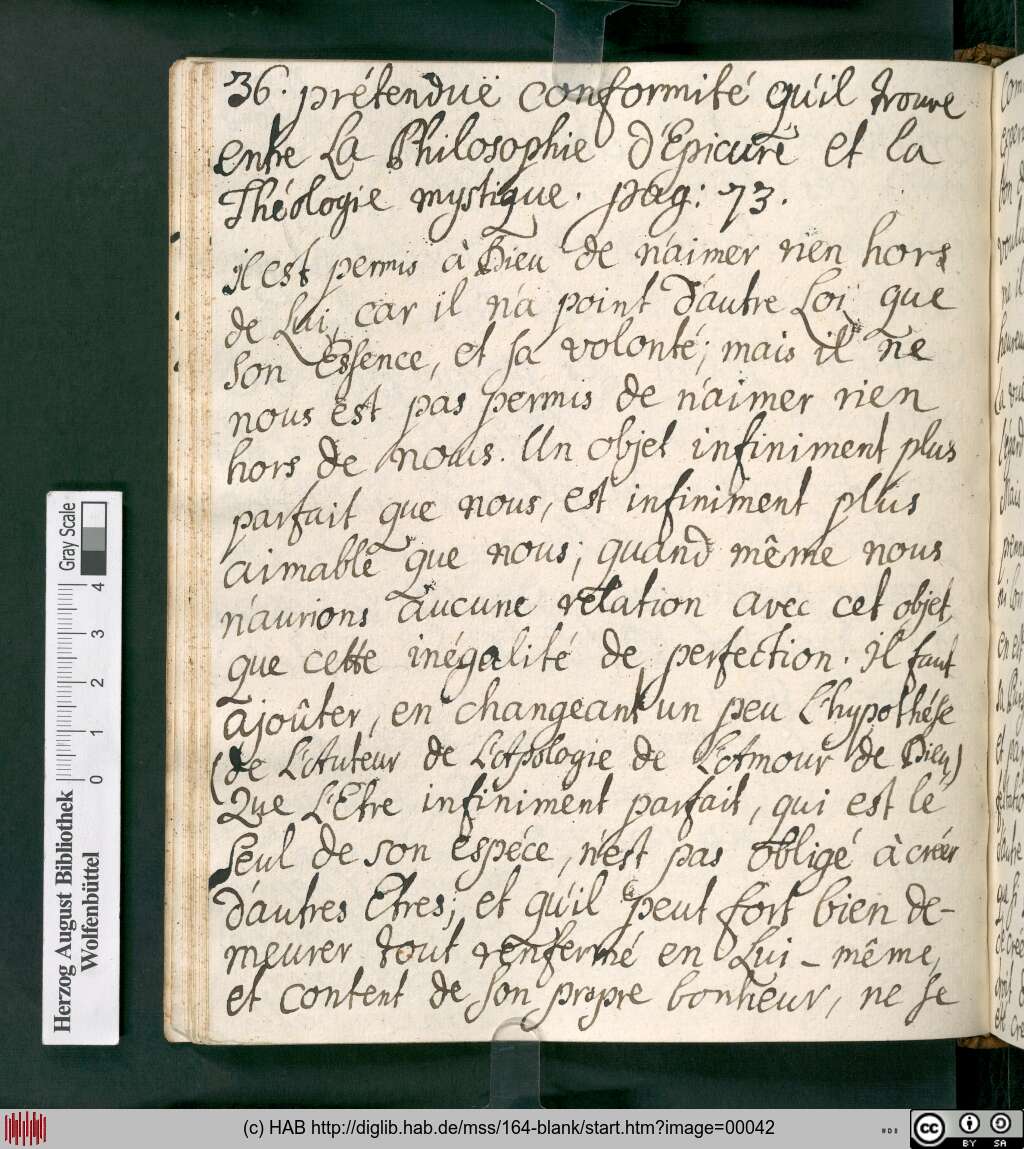 36. prétenduë conformité qu'il trouve
entre La Philosophie d'Epicure et la
Théologie mystique. pag: 73.
Il est permis à Dieu de n'aimer rien hors
de Lui, car il n'a point d'autre Loi que
son Essence, et sa volonté; mais il ne
nous est pas permis de n'aimer rien
hors de nous. Un objet infiniment plus
parfait que nous, est infiniment plus
aimable que nous; quand même nous
n'aurions aucune relation avec cet objet,
que cette inégalité de perfection. Il faut
ajoûter, en changeant un peu L'hypothése
(de L'Auteur de L'Apologie de L'Amour de Dieu)
Que L'Etre infiniment parfait, qui est le
seul de son espéce, n'est pas obligé à créer
d'autres Etres; et qu'il peut fort bien de-
meurer tout renfermé en Lui-même,
et content de son propre bonheur, ne se
Gray Scale
4
3
2
1
0
Herzog August Bibliothek
Wolfenbüttel
(c) HAB http://diglib.hab.de/mss/164-blank/start.htm?image=00042
cc BY SA